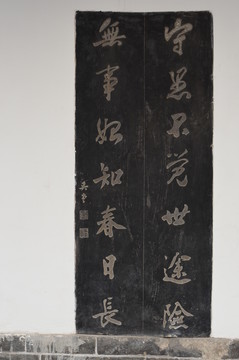 守愚不覺世途險
無事始知春日長